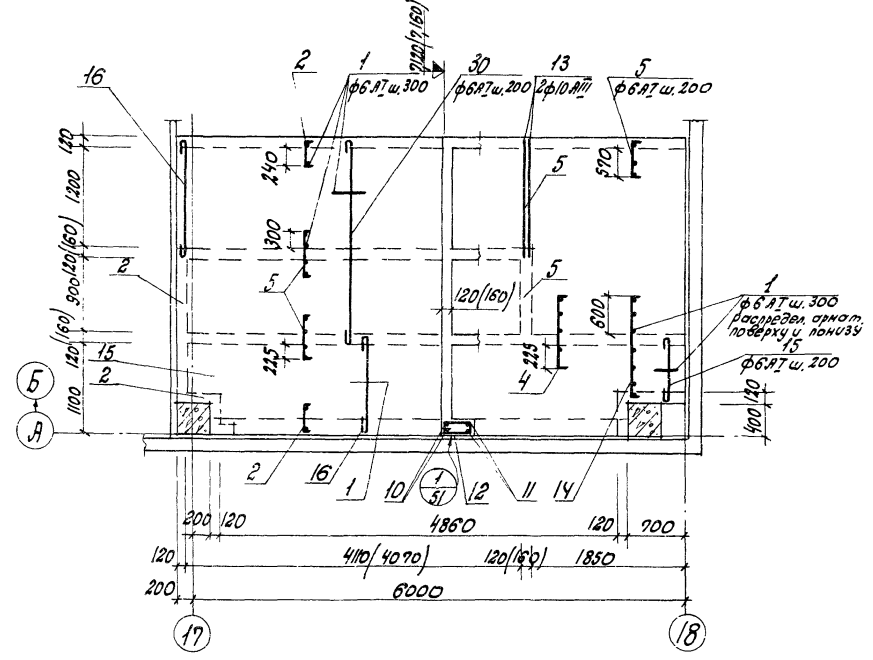 7,120(7,160)
16
2
1
φ6АI ш.300
30
φ6АI ш.200
13
2φ10АIII
5
φ6АI ш.200
120
240
570
1200
5
300
120(160)
2
5
5
900
120(160)
1
φ6АI ш.300
распредел. армат.
поверху и понизу
600
120
(160)
15
225
225
15
φ6АI ш.200
4
Б
2
1100
120
А
400
2
16
1
10
1
51
12
11
14
200
120
4860
120
700
120
4110(4070)
120(160)
1850
200
6000
17
18